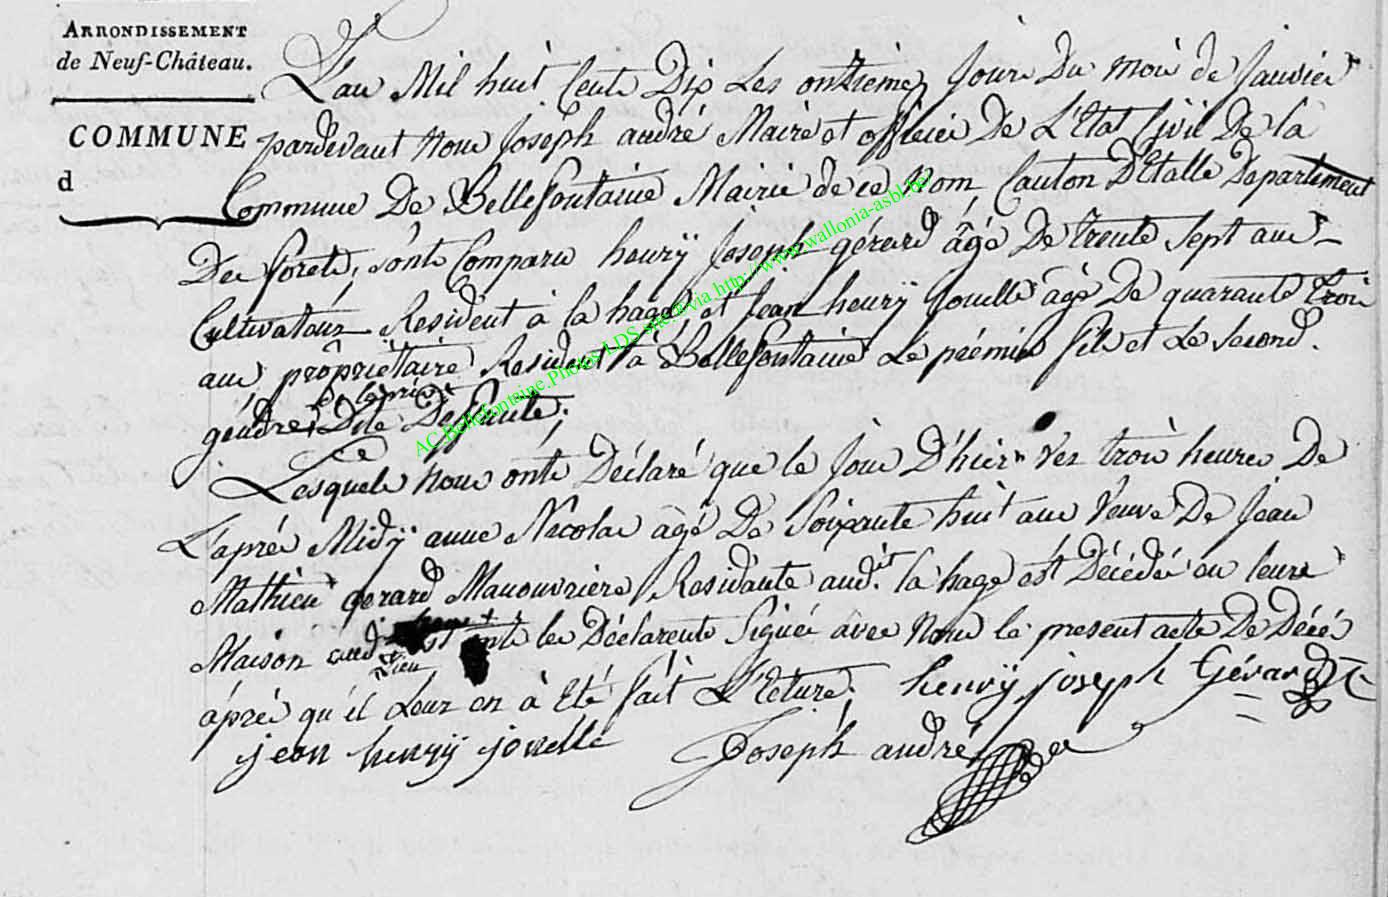 ARRONDISSEMENT
de Neuf-Château.
COMMUNE
d
L'an Mil huit Cents Dix Les onzieme Jour Du mois de Janvier
pardevant Nous Joseph andré Maire et officier De L'Etat Civil De la
Commune De Bellefontaine Mairie de ce Nom Canton D'Etalle Département
Des forets, sont Comparu henrÿ Joseph gérard âgé De trente Sept ans
Cultivateur Resident à la hage et Jean henrÿ Jouelle âgé De quarante trois
ans propriétaire Resident à Bellefontaine Le prémier fils et Le second
gendre, Dite Deffunte,
Lesquels Nous onts Déclaré que le Jour D'hier Ver trois heures De
L'aprés Midÿ anne Nicolas âgé De Soixante huit ans Veuve De Jean
Mathieu gerard Manouvriere Residante audit la hage est Décédée en leure
Maison aud
Lieu
onts les Déclarents Signés avec Nous le present acte De Décés
áprés qu'il Leur en à Eté fait L'Ecture.
henrÿ joseph Gérard
jean henrÿ jouelle
Joseph andré
AC Bellefontaine.Photos LDS site.fr via http://www.wallonia-asbl.be/